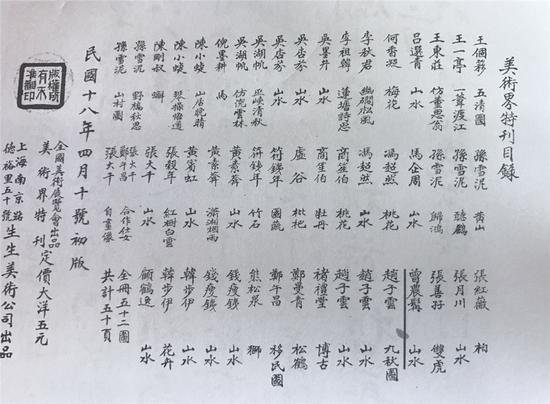 美術界特刊目錄
王個簃 五清圖 孫雪泥 黃山 張紅薇 柏
王一亭 一葦渡江 孫雪泥 聽鸝 張月川 山水
王東莊 仿董思翁 孫雪泥 歸鴻 張善孖 雙虎
呂選青 山水 馬企周 山水 曾農髯 山水
何香凝 梅花 馮超然 桃花 趙子雲 九秋圖
李秋君 幽澗松風 馮超然 山水 趙子雲 山水
李祖韓 蓮塘詩思 商笙伯 桃花 趙子雲 山水
吳墨井 山水 商笙伯 牡丹 褚禮堂 博古
吳杏芬 山水 虛谷 枇杷 鄭曼青 松鶴
吳杏芬 山水 符鐵年 鄭午昌 移民圖
吳湖帆 巫峽清秋 符鐵年 竹石 熊松泉 獅
吳湖帆 仿倪雲林 黃素菴 山水 錢瘦鐵 山水
倪墨耕 馬 黃素菴 瀟湘烟雨 錢瘦鐵 山水
陳小蝶 山居 黃賓虹 山水 韓步伊 山水
陳小蝶 琴操脩道 張穀年 紅樹白雲 韓步伊 花卉
陳剛叔 張大千 山水 顧鶴逸 山水
孫雪泥 野橋秋思 張大千 鄭午昌 合作仕女 全冊五十二圖
孫雪泥 山村圖 張大千 自畫像 共計五十頁
民國十八年四月十號初版
版權所
有不
准翻印
全國美術展覽會出品
美術界特刊定價大洋五元
上海南京路
德福里五十號生生美術公司出品